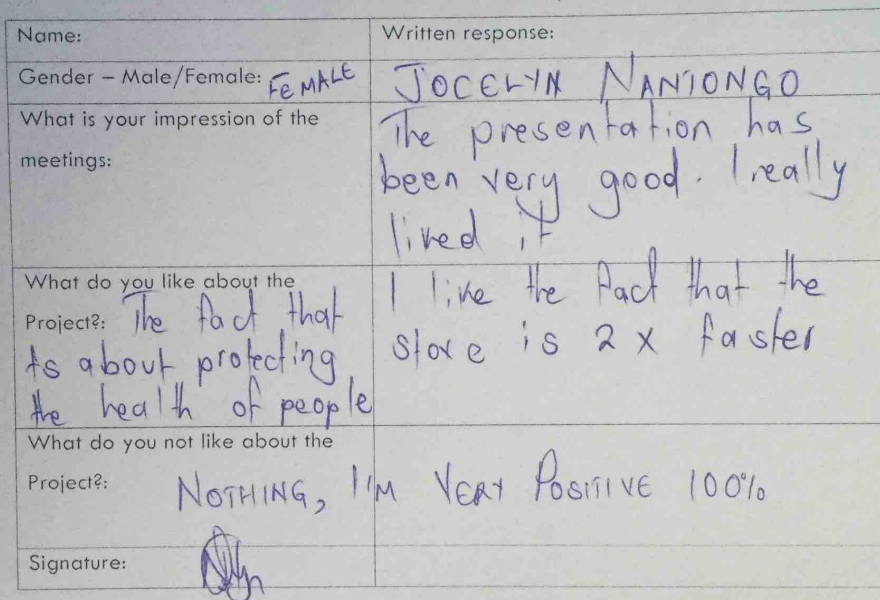 Name:
Written response:
Gender – Male/Female: FEMALE
JOCELYN NANTONGO
What is your impression of the
meetings:
The presentation has
been very good. I really
liked it
What do you like about the
Project?: The fact that
its about protecting
the health of people
I like the fact that the
stove is 2 x faster
What do you not like about the
Project?: NOTHING, I'M VERY POSITIVE 100%
Signature: